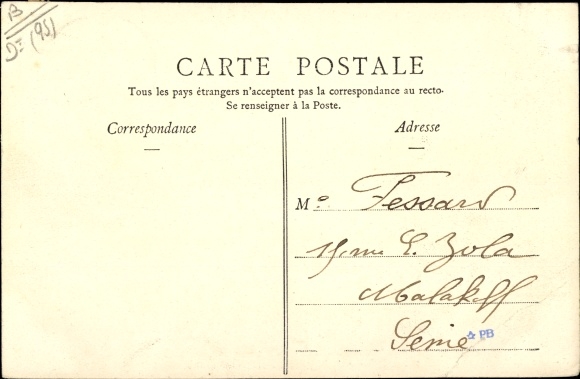 B
Dt (95)
CARTE POSTALE
Tous les pays étrangers n'acceptent pas la correspondance au recto.
Se renseigner à la Poste.
Correspondance
Adresse
Me Fessard
15 rue E. Zola
Malakoff
Seine
PB